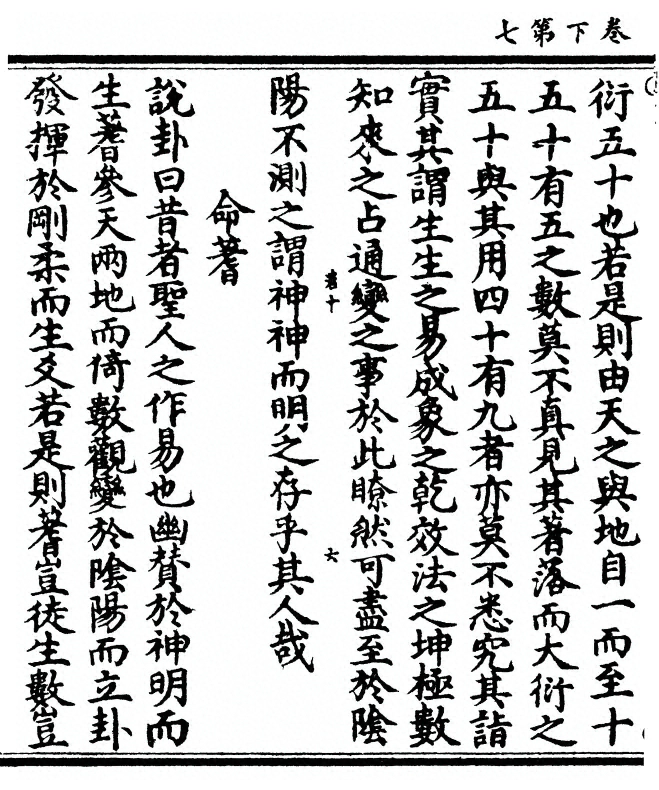 卷下第七
衍五十也若是則由天之與地自一而至十
五十有五之數莫不真見其著落而大衍之
五十與其用四十有九者亦莫不悉究其詣
實其謂生生之易成象之乾效法之坤極數
知來之占通變之事於此瞭然可盡至於陰
卷十
六
陽不測之謂神神而明之存乎其人哉
命蓍
說卦曰昔者聖人之作易也幽贊於神明而
生蓍參天兩地而倚數觀變於陰陽而立卦
發揮於剛柔而生爻若是則蓍豈徒生數豈